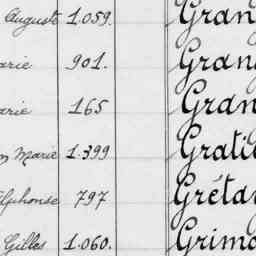 Auguste 1.059. Gran
arie 901. Gran
arie 165 Gran
n Marie 1.399 Grati
lphonse 797 Gréta
Gilles 1.060. Grima